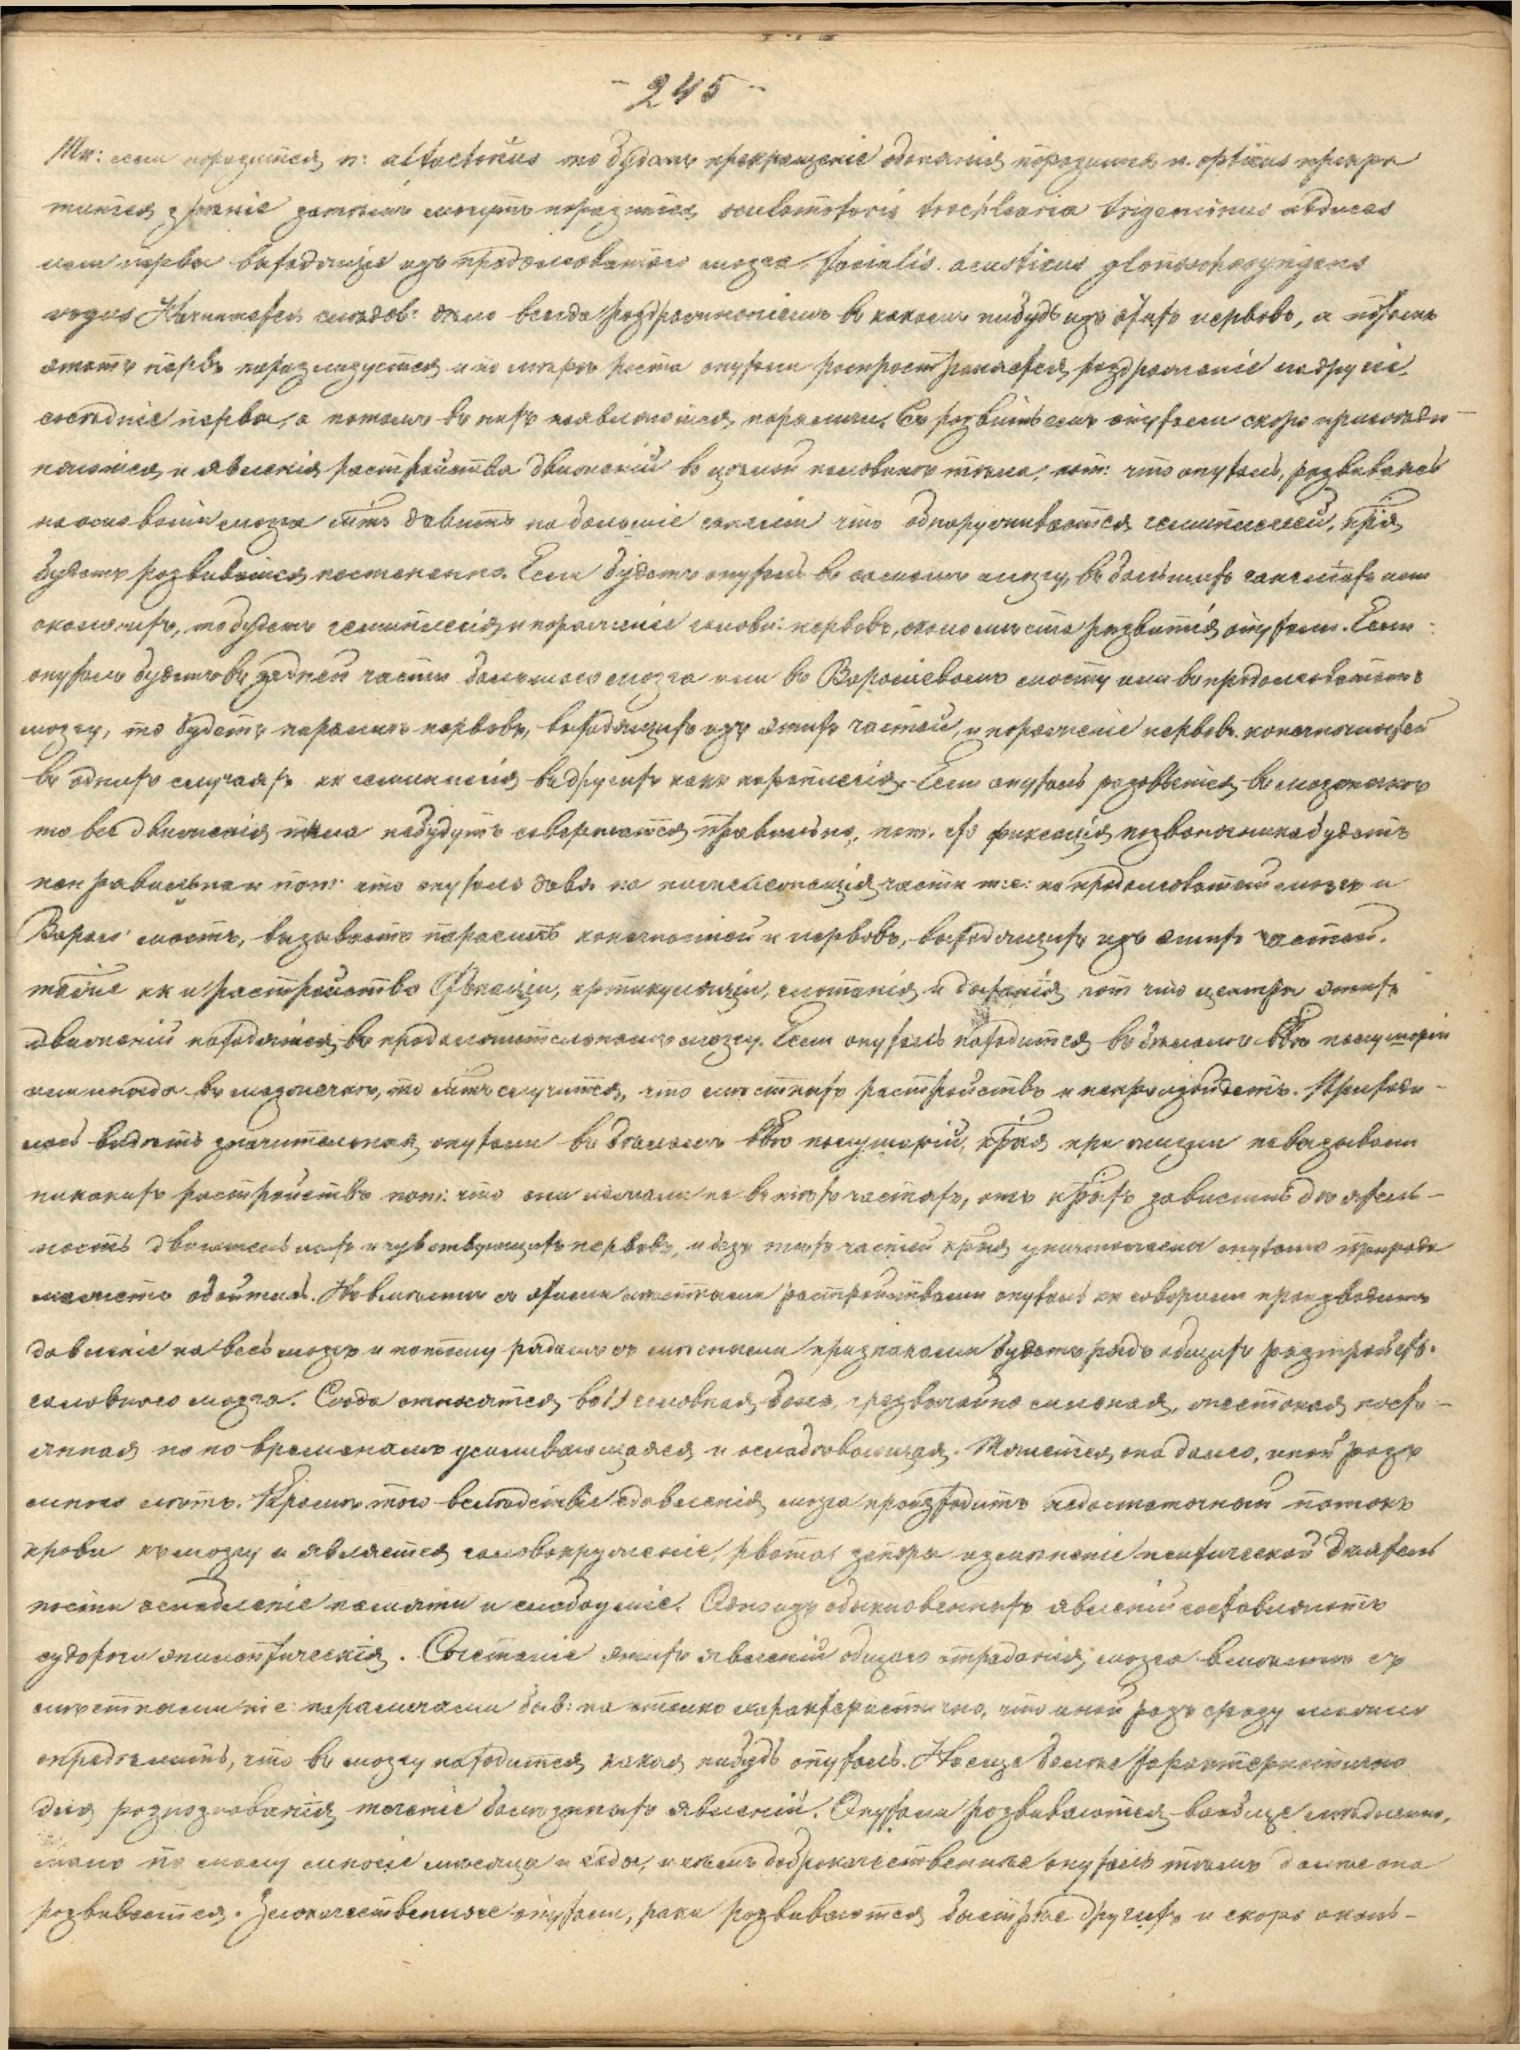 - 245 -
Тк: если поразится n: olfactorius то будетъ прекращеніе обонянія поразится n. opticus прекра
тится зрѣніе затѣмъ могутъ поразится oculomotoris trochlearis trigeminus abducens
или нервы выходящіе изъ продолговатаго мозга, facialis. acusticus glossopharyngeus
vagus Начинается слѣдов: дѣло всегда раздраженіемъ въ какомъ нибудь изъ этихъ нервовъ, а потомъ
этотъ нервъ парализуется и по мѣрѣ роста опухоли распространяется раздраженіе на другіе,
сосѣдніе нервы, а потомъ въ нихъ появляются параличи. Съ развитіемъ опухоли скоро присоеди-
няются и явленія растройства движеній въ цѣлой половинѣ тѣла, пот: что опухоль, развиваясь
на основаніи мозга мтъ давить на большіе ганглии что обнаруживается гемиплегіей, крія
будетъ развиваться постепенно. Если будетъ опухоль въ самомъ мозгу, въ большихъ ганглiяхъ или
около нихъ, то будетъ гемиплегія и пораженіе головн: нервовъ, около мѣста развитія опухоли. Если
опухоль будетъ въ задней части большаго мозга или въ Вароліевомъ мосту или въ продолговатомъ
мозгу, то будетъ параличъ нервовъ, выходящихъ изъ этихъ частей, и пораженіе нервовъ конечностей
въ однихъ случаяхъ кк гемиплегія въ другихъ какъ параплегія. Если опухоль разовьется въ мозжечкѣ
то всѣ движенія тѣла не будутъ совершатся правильно, пот. что фиксація позвоночника будетъ
неправильная и пот: что опухоль давя на нижележащія части т:е: на продолговатый мозгъ и
Варол: мостъ, вызываетъ параличъ конечностей и нервовъ, выходящихъ изъ этихъ частей.
также кк и растройство фонаціи, артикуляціи, глотанія и дыханія, пот что центры этихъ
движеній находятся въ продолжительномъ мозгу. Если опухоль находится въ бѣломъ ввѣ полушарій
или иногда въ мозжечкѣ, то мтъ случится, что мѣстныхъ растройствъ и не произойдетъ. Приходи-
лось видѣть значительныя опухоли въ бѣломъ ввѣ полушарій, крыя при жизни не вызывали
никакихъ растройствъ пот: что они лежали не въ тѣхъ частяхъ, отъ крыхъ зависитъ дѣятель-
ность двигательныхъ и чувствующихъ нервовъ, и безъ тѣхъ частей крыя уничтожены опухолью природа
можетъ обойтись. Но вмѣстѣ съ этими мѣстными растройствами опухоль кк говорили производитъ
давленіе на весь мозгъ и потому рядомъ съ мѣстными признаками будетъ рядъ общихъ разстройствъ.
головнаго мозга. Сюда относятся во 1) головная боль, чрезвычайно сильная, жестокая посто-
янная но по временамъ усиливающаяся и ослабѣвающая. Тянется она долго, иной разъ
много лѣтъ. Кромѣ того вслѣдствіе сдавленія мозга происходитъ недостаточный потокъ
крови къ мозгу и является головокруженіе, рвота, запоры измѣненіе психической дѣятель
ности ослабленіе памяти и слабоуміе. Одно изъ обыкновенныхъ явленій составляютъ
судороги эпилептическія. Сочетаніе этихъ явленій общаго страданія мозга вмѣстѣ съ
мѣстными т:е: параличами быв: на столько характеристично, что иной разъ сразу можно
опредѣлить, что въ мозгу находится какая нибудь опухоль. Но еще болѣе характеристично
для розпознаванія теченіе болѣзненныхъ явленій. Опухоли розвиваются вообще медленно,
мало по малу многіе мѣсяцы и годы, и чѣмъ доброкачественнѣе опухоль тѣмъ долѣе она
розвивается. Злокачественныя опухоли, раки розвиваются быстрѣе другихъ и скоро окан-